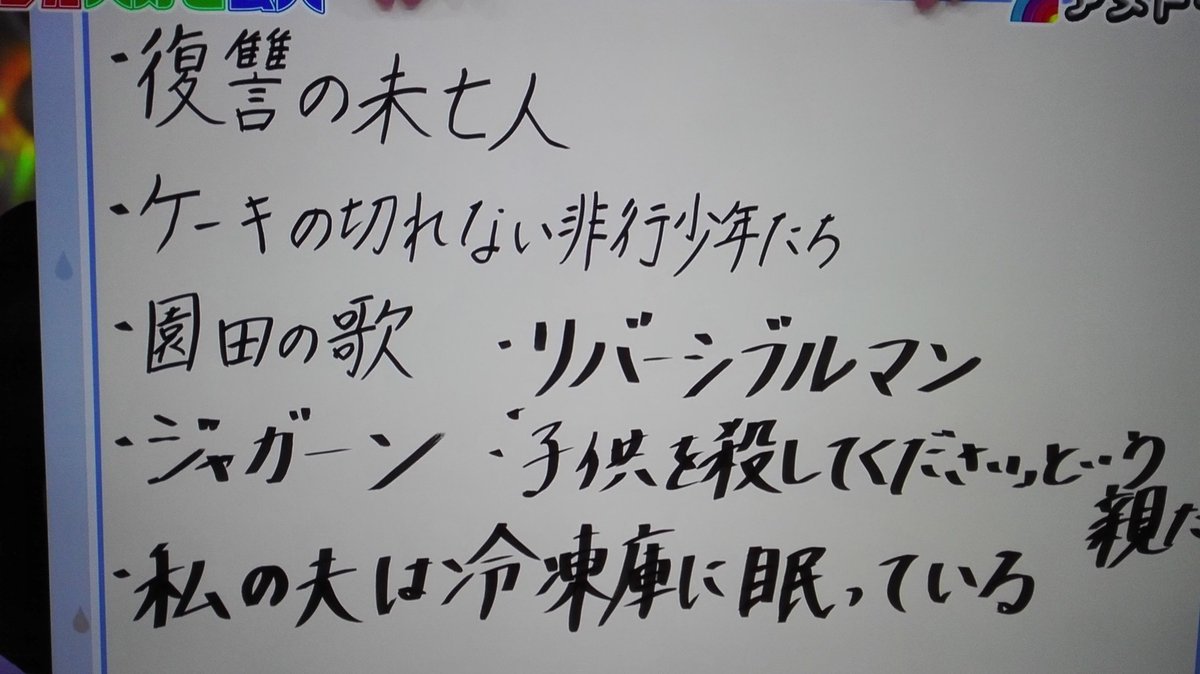 ・復讐の未亡人
・ケーキの切れない非行少年たち
・園田の歌
・リバーシブルマン
・ジャガーン
・子供を殺してくださいという
親た
・私の夫は冷凍庫に眠っている